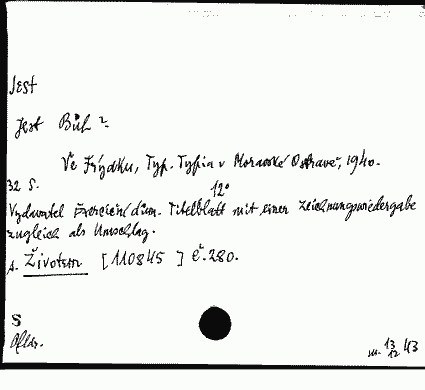 Jest
Jest Bůh?
Ve Frýdku, Typ. Typia v Moravské Ostravě, 1940.
32 S. 12°
Vydavatel Exerciční dům. Titelblatt mit einer Zeichnungswiedergabe
zugleich als Umschlag.
s. Životem [110845] č. 280.
S
13 43
12